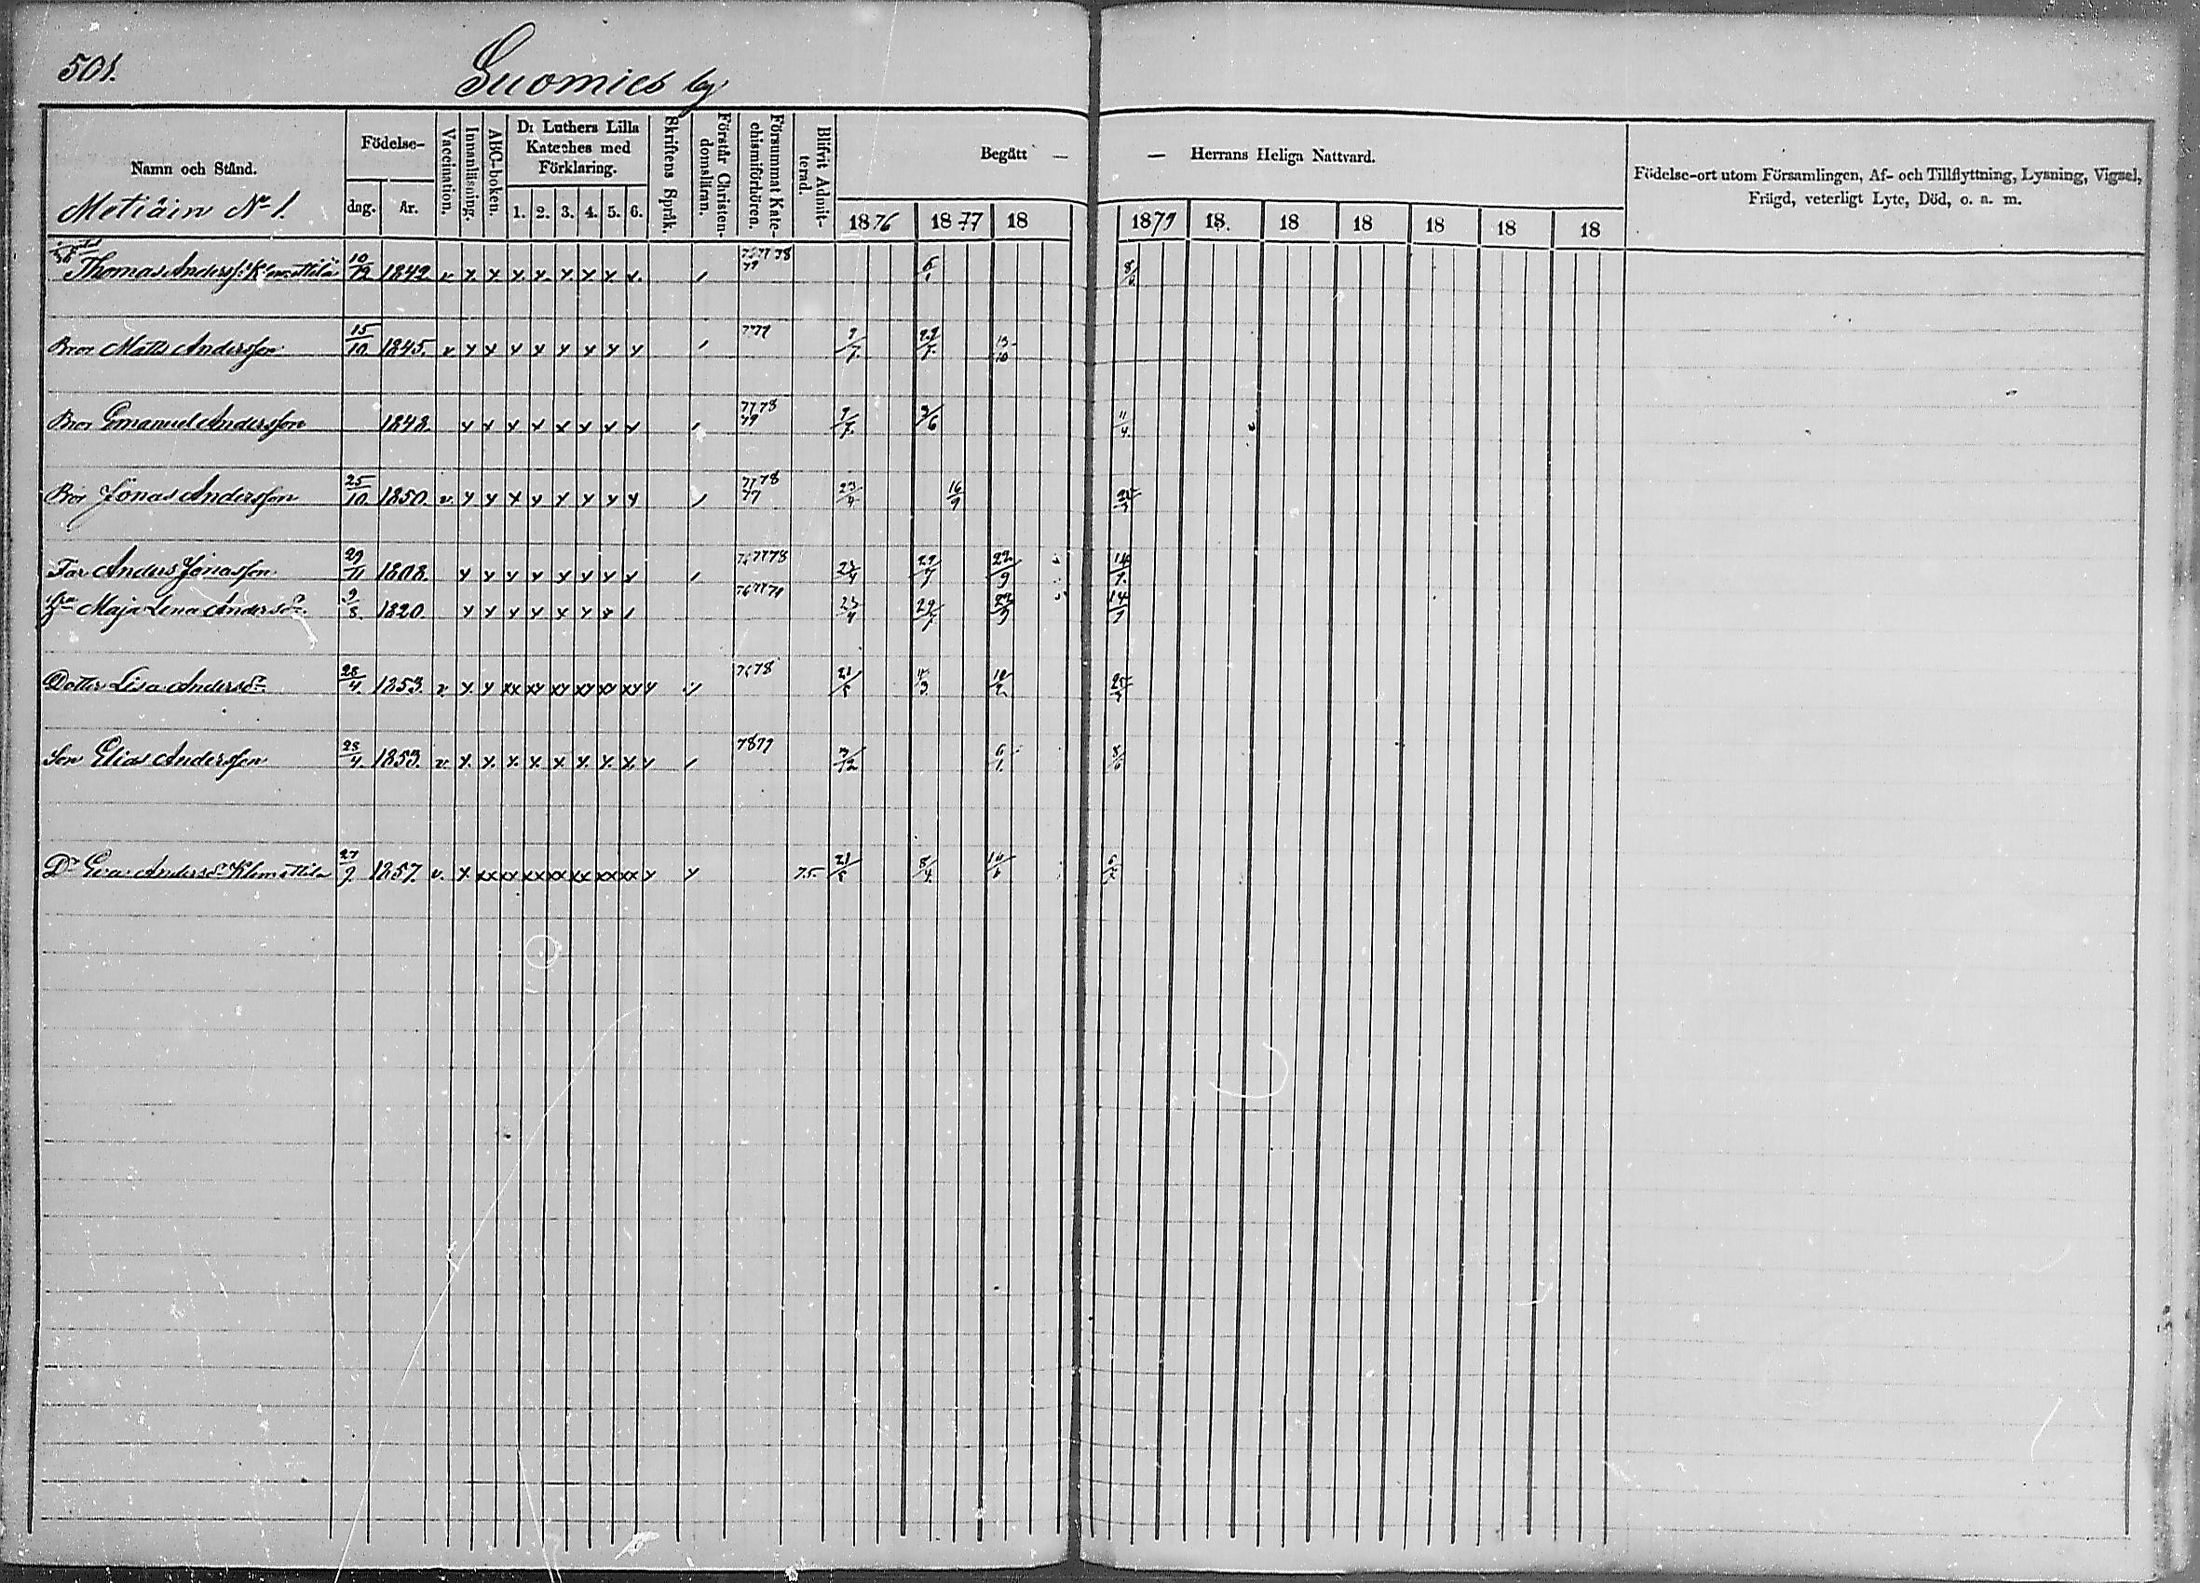 501.
Suomies by
Namn och Stånd.
Födelse-
dag.
År.
Vaccination.
Innanläsning.
ABC-boken.
D: Luthers Lilla
Kateches med
Förklaring.
1. 2. 3. 4. 5. 6.
Skriftens Språk.
Förstår Christen-
domsläran.
Försummat Kate-
chismiförhören.
Blifvit Admit-
terad.
Begått —
— Herrans Heliga Nattvard.
1876 1877 18
1879 18. 18 18 18 18 18
Födelse-ort utom Församlingen, Af- och Tillflyttning, Lysning, Vigsel,
Frägd, veterligt Lyte, Död, o. a. m.
Metiäin No 1.
Thomas Anderss: Klemettilä 10/12 1842 v x x x x x x x x 6/1 8/6
Bror Matts Andersson 15/10 1845. v x x x x x x x x 9/7. 29/7. 13/10
Bror Emanuel Andersson 1848. x x x x x x x x 77 78 79 9/7. 3/6 11/4.
Bror Jonas Andersson 25/10. 1850. v x x x x x x x x 77 78 23/4 16/9 25/3
Far Anders Jonasson 29/11 1808. x x x x x x x x 77 78 23/4 29/7 22/9 14/9.
Maja Lena Andersdr. 9/8. 1820. x x x x x x x 23/4 29/7 22/9 14/9
Dotter Lisa Andersdr 28/4. 1853. v x x xx xx xx xx xx xx x 78 21/5 4/3. 25/3
Son Elias Andersson 28/4. 1853. v. x. x. x. x. x x x. x. x 78 79 3/12 6/1. 8/6
Dr Eva Andersdr Klemettilä 27/9 1857. v. x xx xx xx xx xx xx xx x x 75. 21/5 8/4.